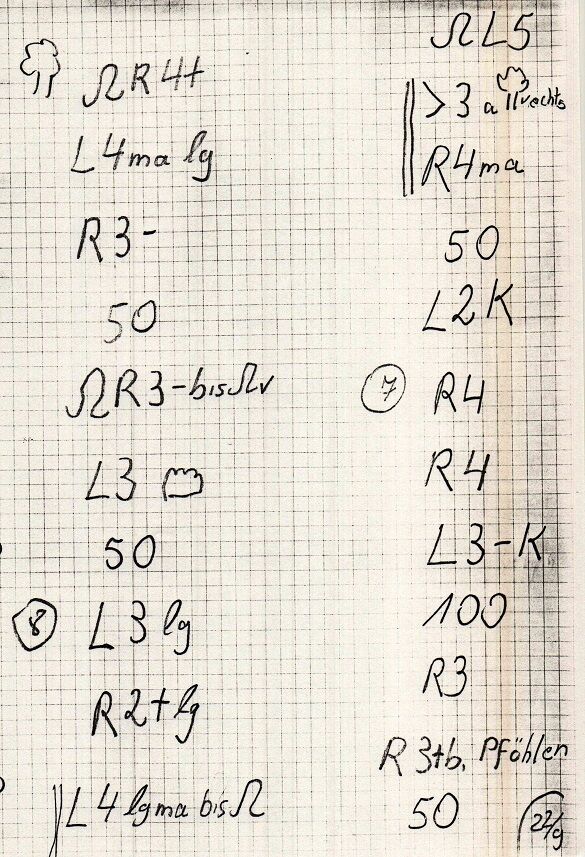 ΩR4+
L4ma lg
R3-
50
ΩR3-bisΩv
L3
50
8 L3 lg
R2+lg
L4 lgma bisΩ
ΩL5
>3 a rechts
R4ma
50
L2K
7 R4
R4
L3-K
100
R3
R3+b. Pföhlen
50
22/9